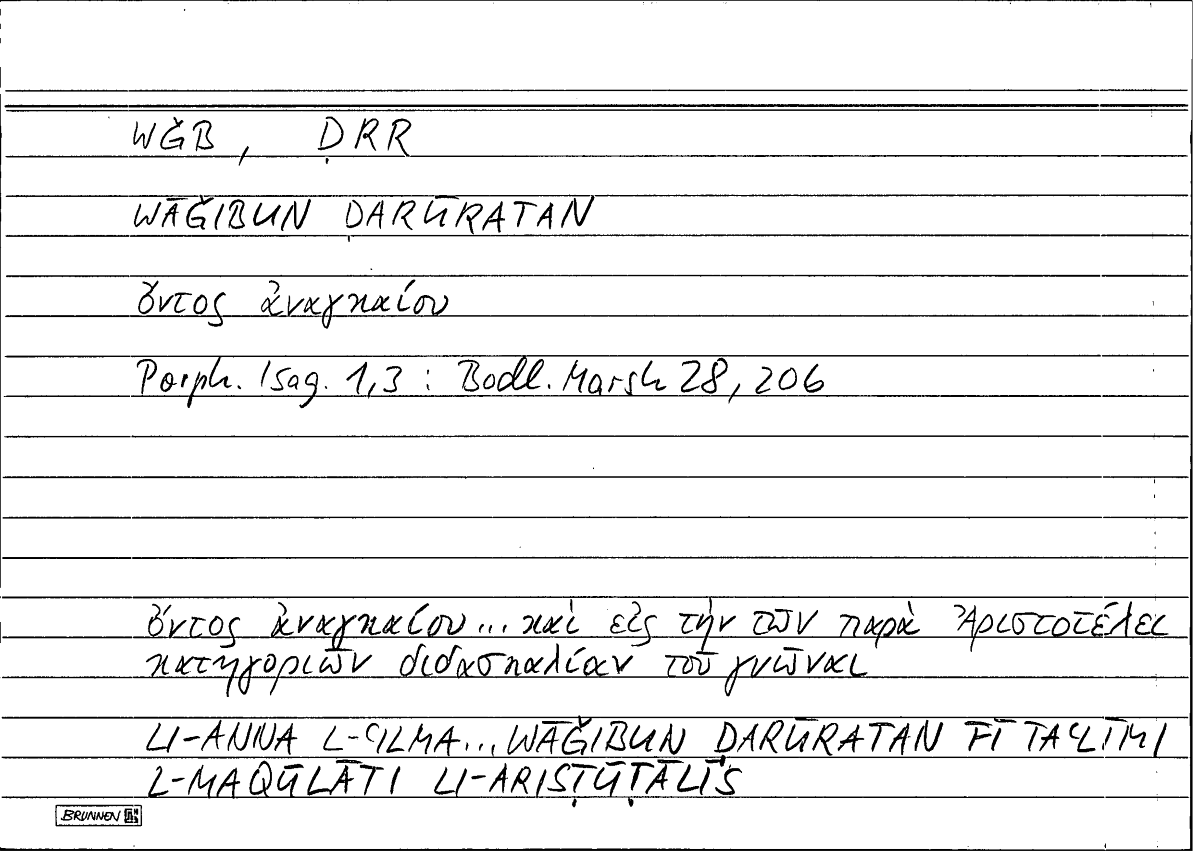 WǦB, ḌRR
WĀǦIBUN ḌARŪRATAN
ὄντος ἀναγκαίου
Porph. Isag. 1,3 : Bodl. Marsh 28, 206
ὄντος ἀναγκαίου... καὶ εἰς τὴν τῶν παρὰ Ἀριστοτέλει
κατηγοριῶν διδασκαλίαν τοῦ γνῶναι
LI-ANNA L-ʿILMA... WĀǦIBUN ḌARŪRATAN FĪ TAʿLĪMI
L-MAQŪLĀTI LI-ARISṬŪṬĀLĪS
BRUNNEN